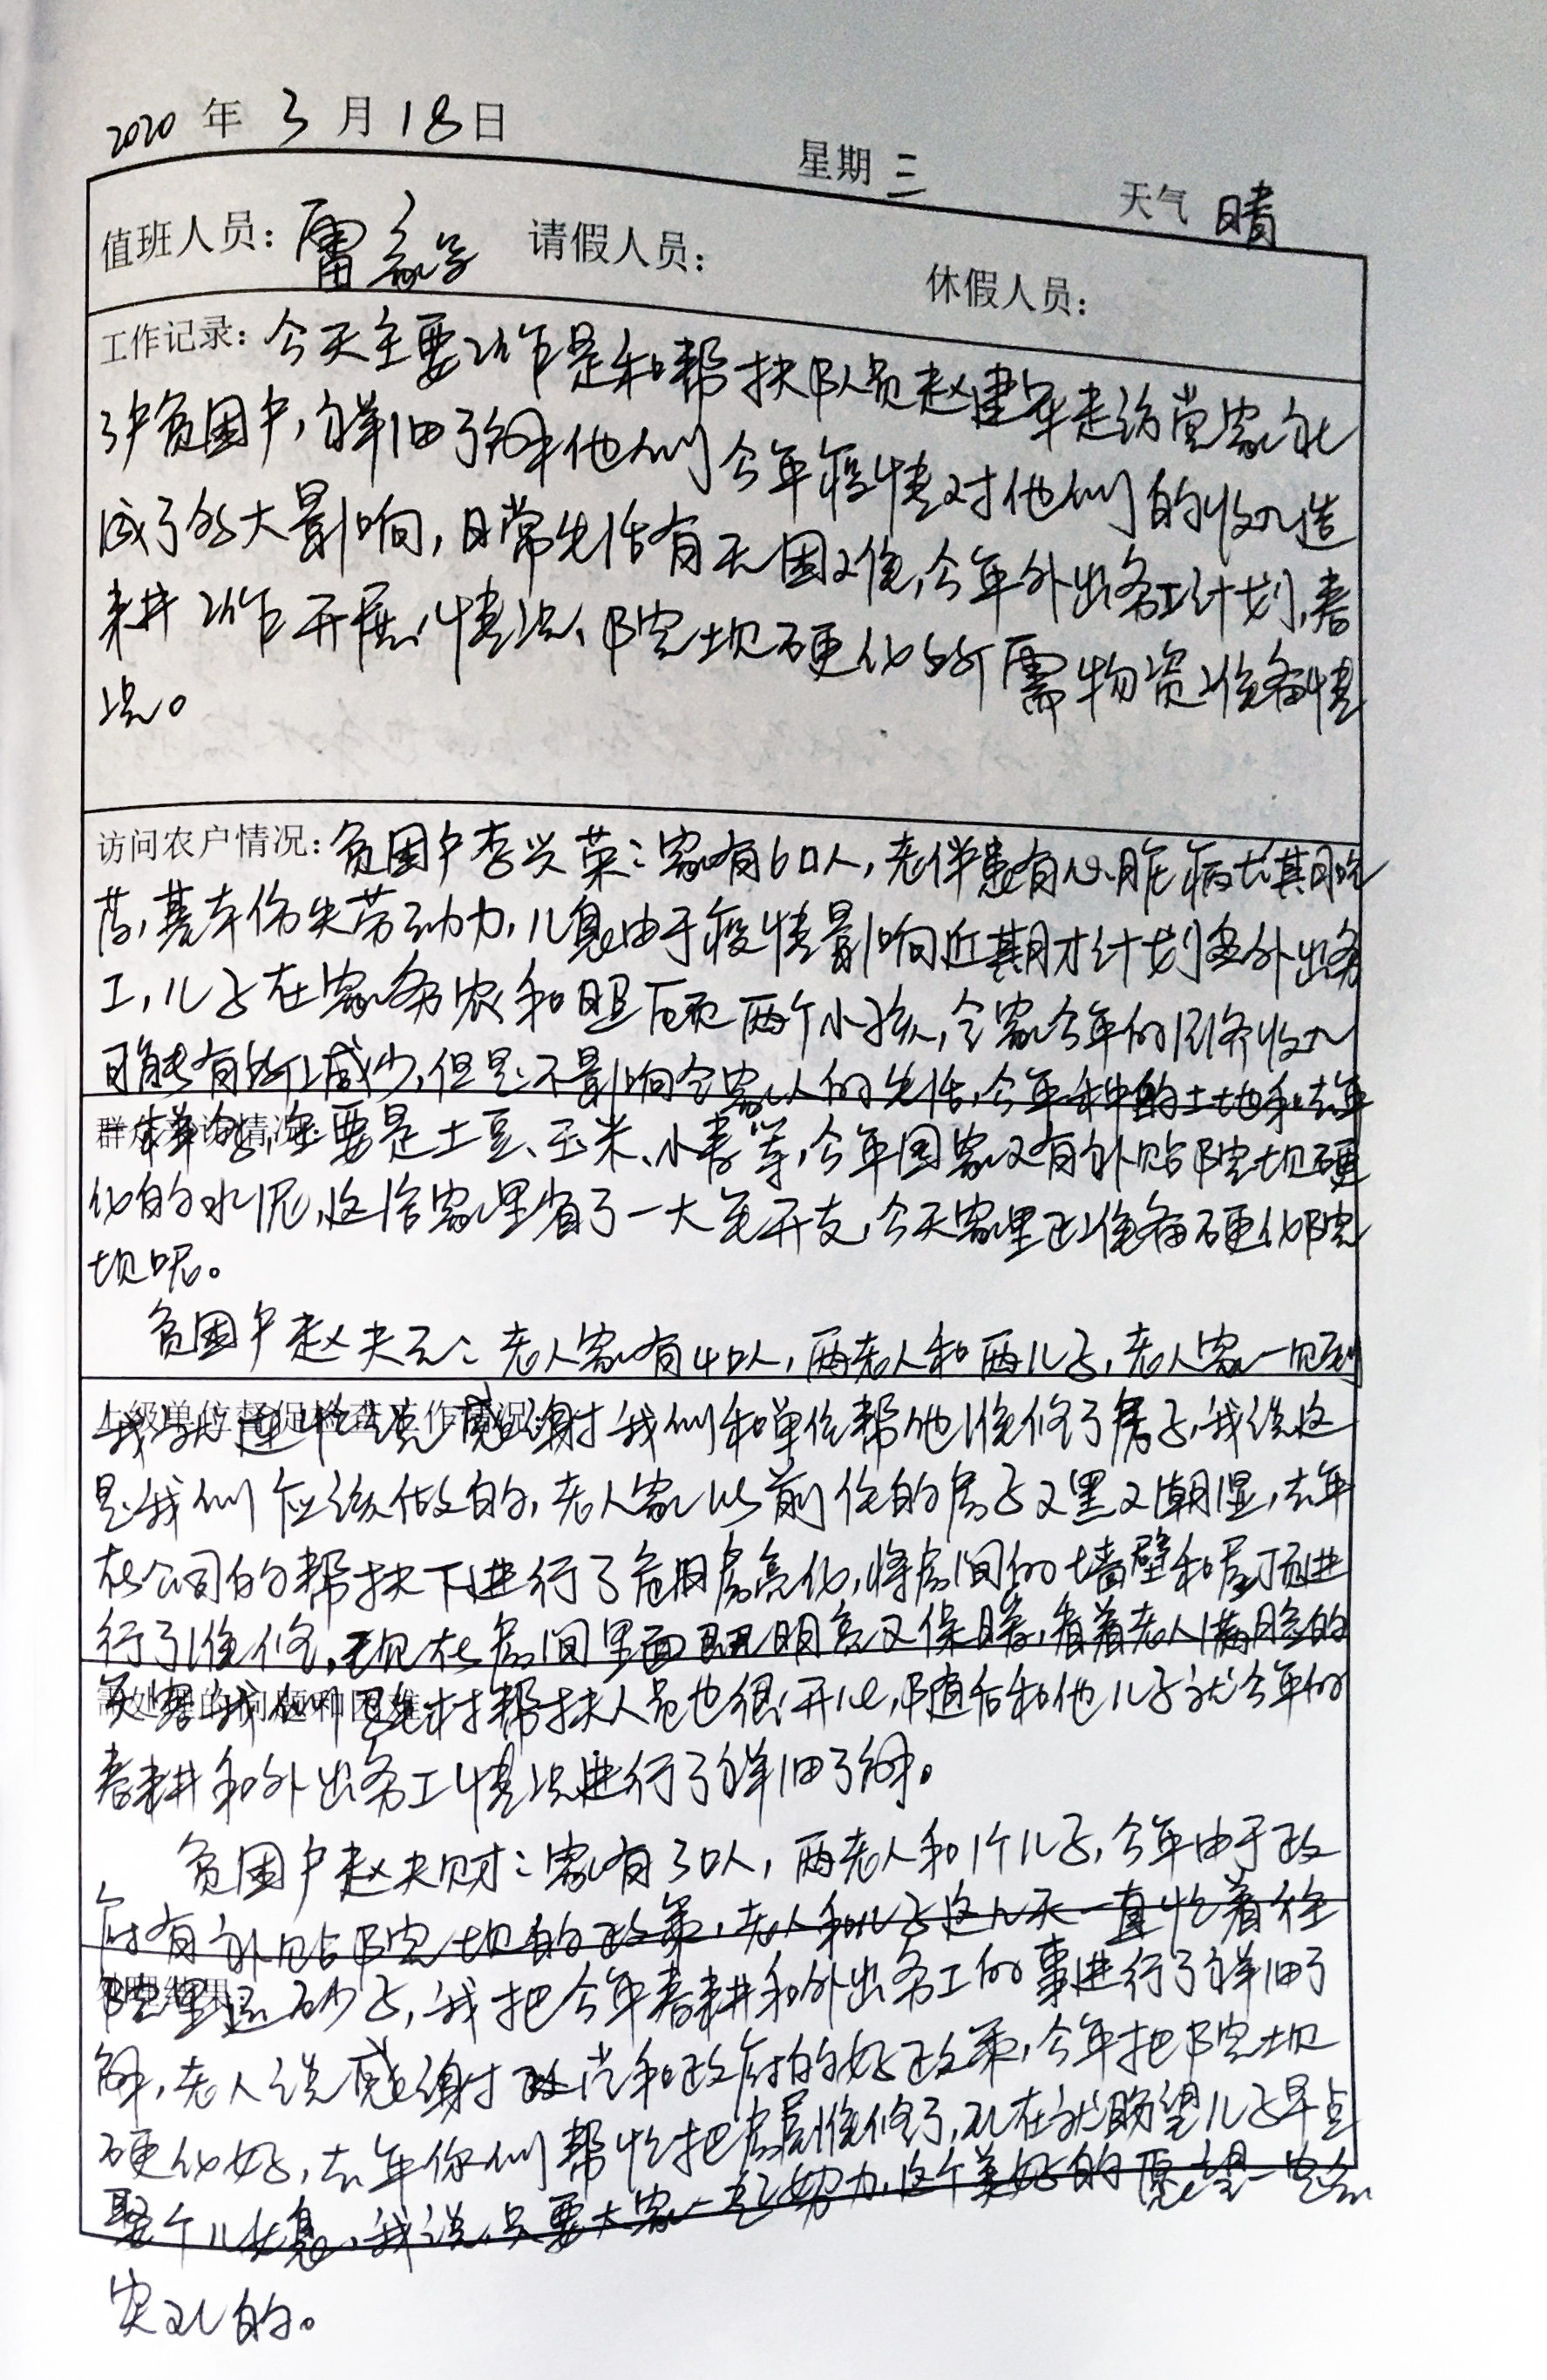 2020 年 3 月 18 日
星期 三
天气 晴
值班人员： 雷 请假人员： 休假人员：
工作记录：今天主要工作是和帮扶队员赵建军走访党家
3户贫困户，详细了解他们今年疫情对他们的收入造
成了多大影响，日常生活有无困难，今年外出务工计划，春
耕工作开展情况、院坝硬化所需物资准备情
况。
访问农户情况：贫困户李兴荣：家有6口人，老伴患有心脏病长期吃
药，基本伤失劳动力，儿媳由于疫情影响近期才计划要外出务
工，儿子在家务农和照顾两个小孩，全家今年的经济收入
可能有所减少，但是不影响全家人的生活，今年种的土地和去年
群众 情况：
一样多，主要是土豆、玉米、小麦等，今年国家又有补贴院坝硬
化的水泥，这给家里省了一大笔开支，今天家里正准备硬化院
坝呢。
贫困户赵夫云：老人家有4口人，两老人和两儿子，老人家一见到
上级单位督促检查工作情况：
我就连忙说感谢我们和单位帮他维修了房子，我说这
是我们应该做的，老人家以前住的房子又黑又潮湿，去年
在公司的帮扶下进行了危旧房亮化，将房间的墙壁和屋顶进
行了维修，现在房间里面既明亮又保暖，看着老人满脸的
需处理的问题和困难：
笑容我们驻村帮扶人员也很开心，随后和他儿子就今年的
春耕和外出务工情况进行了详细了解。
贫困户赵夫财：家有3口人，两老人和1个儿子，今年由于政
府有补贴院坝的政策，老人和儿子这几天一直忙着往
院里运砂子，我把今年春耕和外出务工的事进行了详细了
解，老人说感谢党和政府的好政策，今年把院坝
硬化好，去年你们帮忙把房屋维修了，现在就盼望儿子早点
娶个儿媳，我说，只要大家一起努力，这个美好的愿望一定会
实现的。